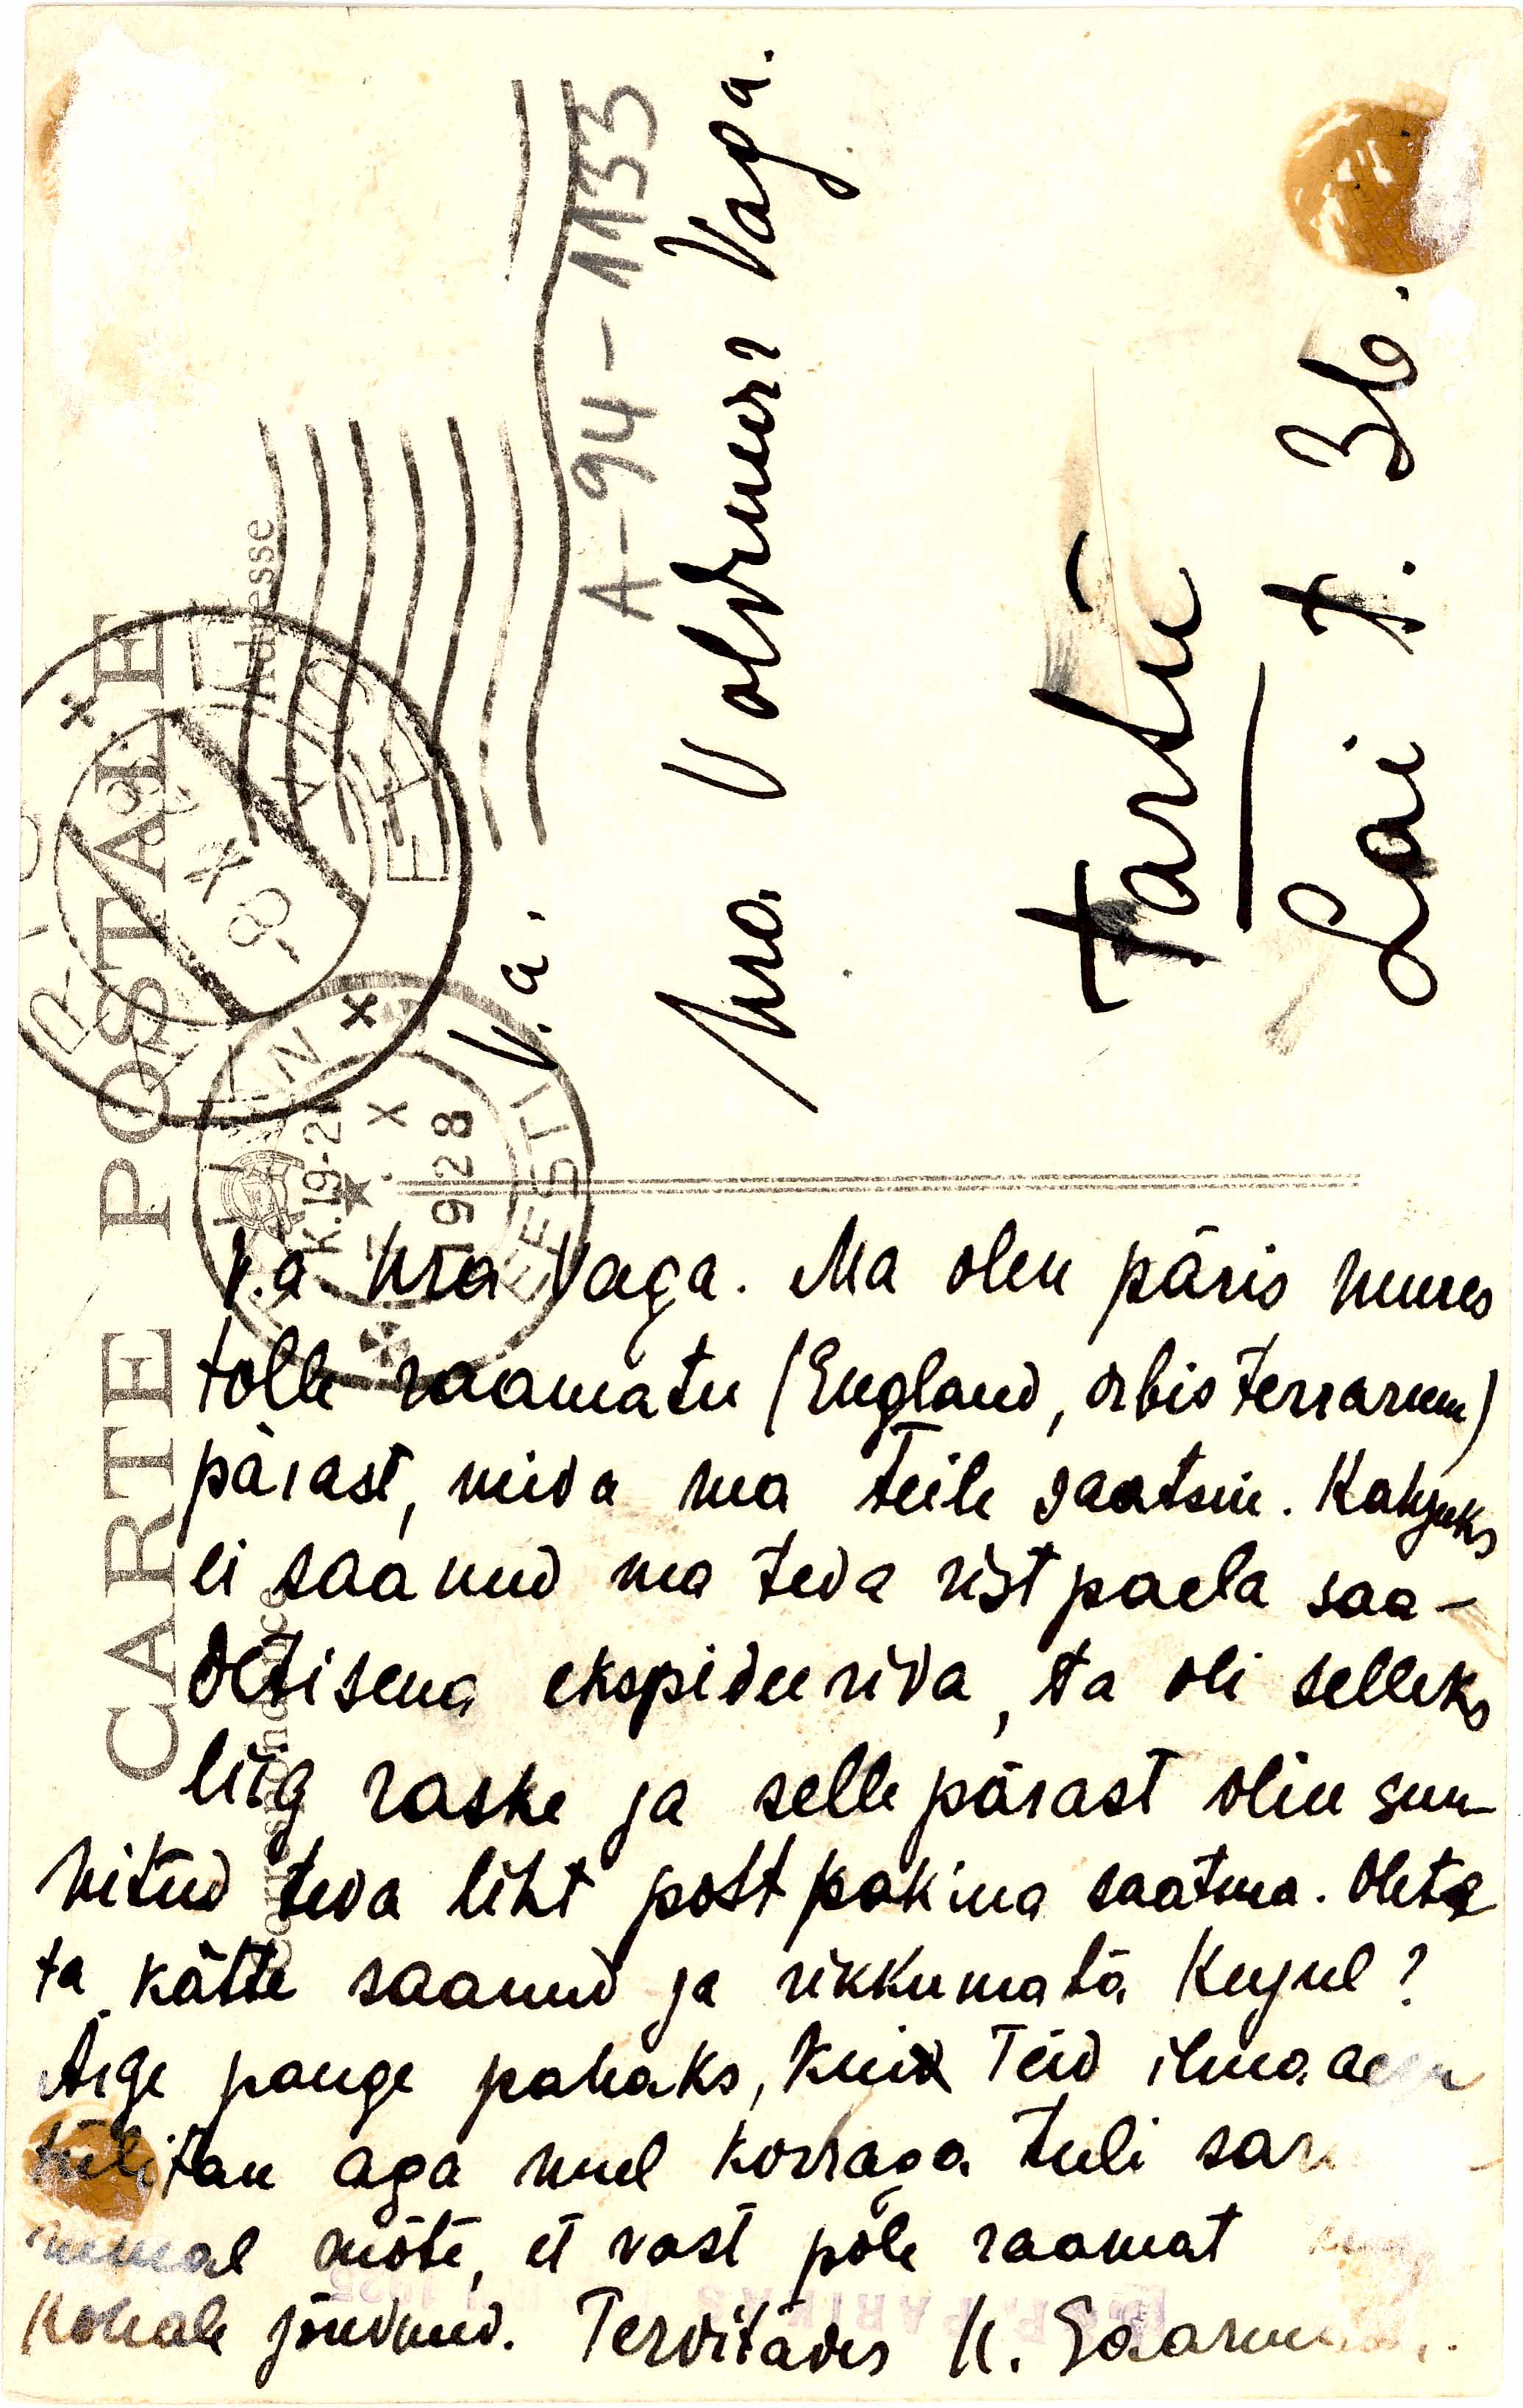 CARTE POSTALE
Correspondance
Adresse
TALLINN
K.19-21
X
1928
EESTI
TARTU
-8 X
EESTI
A-94-1133
V.a.
Hra. Voldemar Vaga.
Tartu
Lai t. 36.
V.a hra Vaga. Ma olen päris mures
tolle raamatu (England, orbis terrarum)
pärast, mida ma Teile saatsin. Kahjuks
ei saanud ma teda ristpaela saa-
detisena ekspideerida, ta oli selleks
liig raske ja selle pärast olin sun-
nitud teda liht postpakina saatma. Olete
ta kätte saanud ja rikkumatā kujul?
Ärge pange pahaks, kui Teid ilma aegu
tülitan aga mul korraga tuli
mõte, et vast pole raamat
kohale jõudnud. Tervitades K.